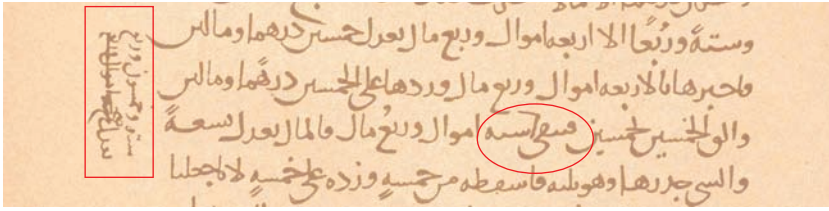 وستةً ورُبعًا الا اربعه اموال وربع مال يعدل خمسين درهما ومالين
فاجبرها بالاربعه اموال وربع مال وردها على الخمسين درهمًا ومالين
والق الخمسين بخمسين فيبقى سته اموال وربعُ مال فالمال يعدل تسعةً
والشى جذرها وهو ثلثه فاسقطه من خمسهٍ وزده على خمسهٍ لانا جعلنا
ستة وخمسون وربع
يعدل اموال وربع